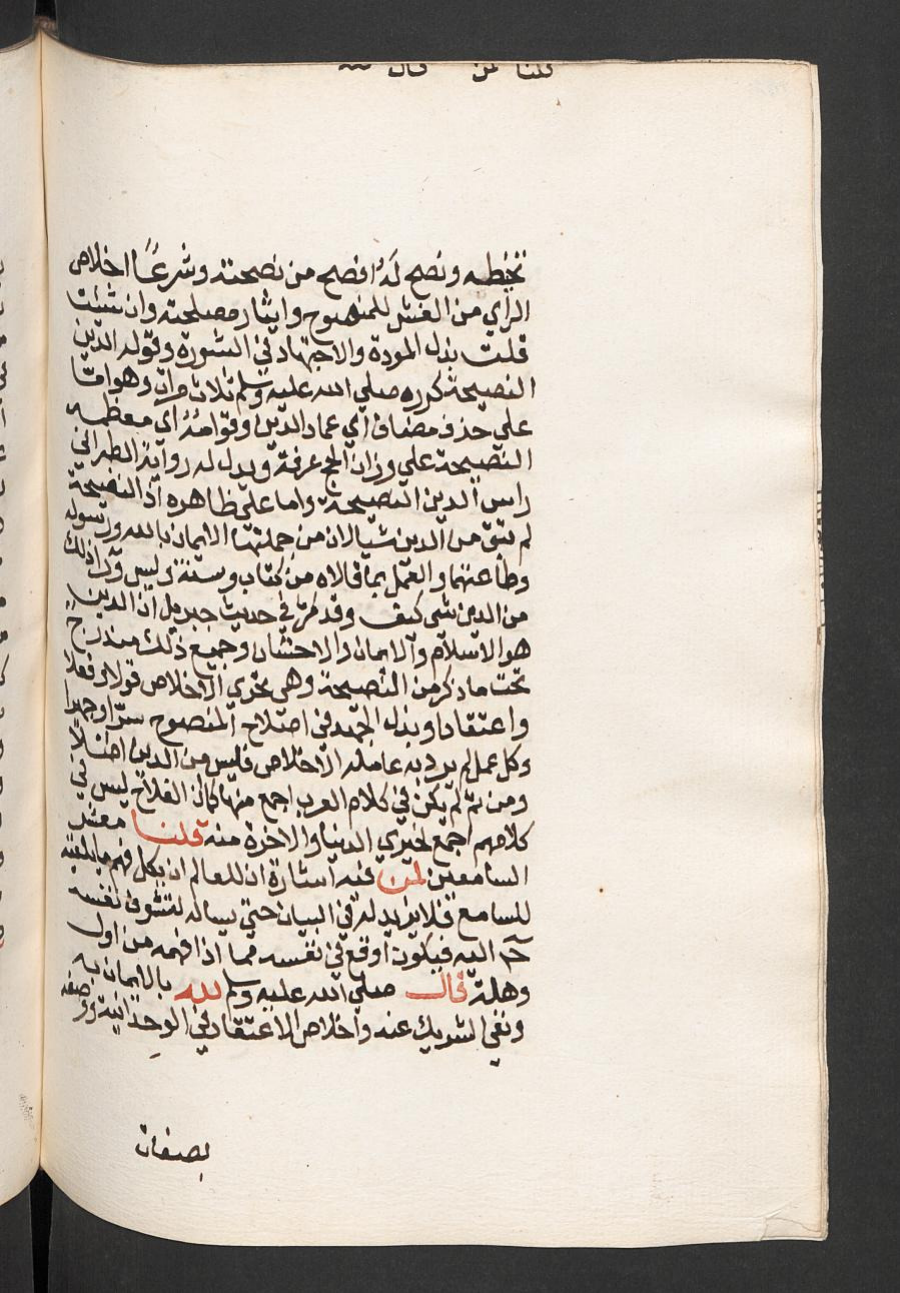 قلنا لمن قال
تخيطه ونصح له افصح من نصحته وشرعًا اخلاص
الرأي من الغش للمنصوح وايثار مصلحته وان شئت
قلت بذل المودة والاجتهاد في المشورة وقوله الدين
النصيحة كرره صلي الله عليه وسلم ثلاث مرات وهو اما
علي حذف مضاف اي عماد الدين وقوامه اي معظمه
النصيحة علي وزان الحج عرفة ويدل له رواية الطبراني
راس الدين النصيحة واما علي ظاهره اذ النصيحة
لم تبق من الدين شيا لان من جملتها الايمان بالله ورسوله
وطاعتهما والعمل بما قالاه من كتاب وسنة وليس ورا ذلك
من الدين شي كيف وقد مر في حديث جبريل ان الدين
هو الاسلام والايمان والاحسان وجميع ذلك مندرج
تحت ما ذكر من النصيحة وهي تحري الاخلاص قولا وفعلا
واعتقادا وبذل الجهد في اصلاح المنصوح سرا وجهرا
وكل عمل لم يرد به عامله الاخلاص فليس من الدين اصلا
ومن ثم لم يكن في كلام العرب اجمع منها كما ان الفلاح ليس في
كلامهم اجمع لخيري الدنيا والاخرة منه قلنا معشر
السامعين لمن فيه اشارة ان للعالم ان يكل فهم ما يلقيه
للسامع فلا يزيد له في البيان حتي يساله لتتشوف نفسه
ح اليه فيكون اوقع في نفسه مما اذا فهمه من اول
وهلة قال صلي الله عليه وسلم لله بالايمان به
ونفي الشريك عنه واخلاص الاعتقاد في الوحدانية ووصفه
بصفات